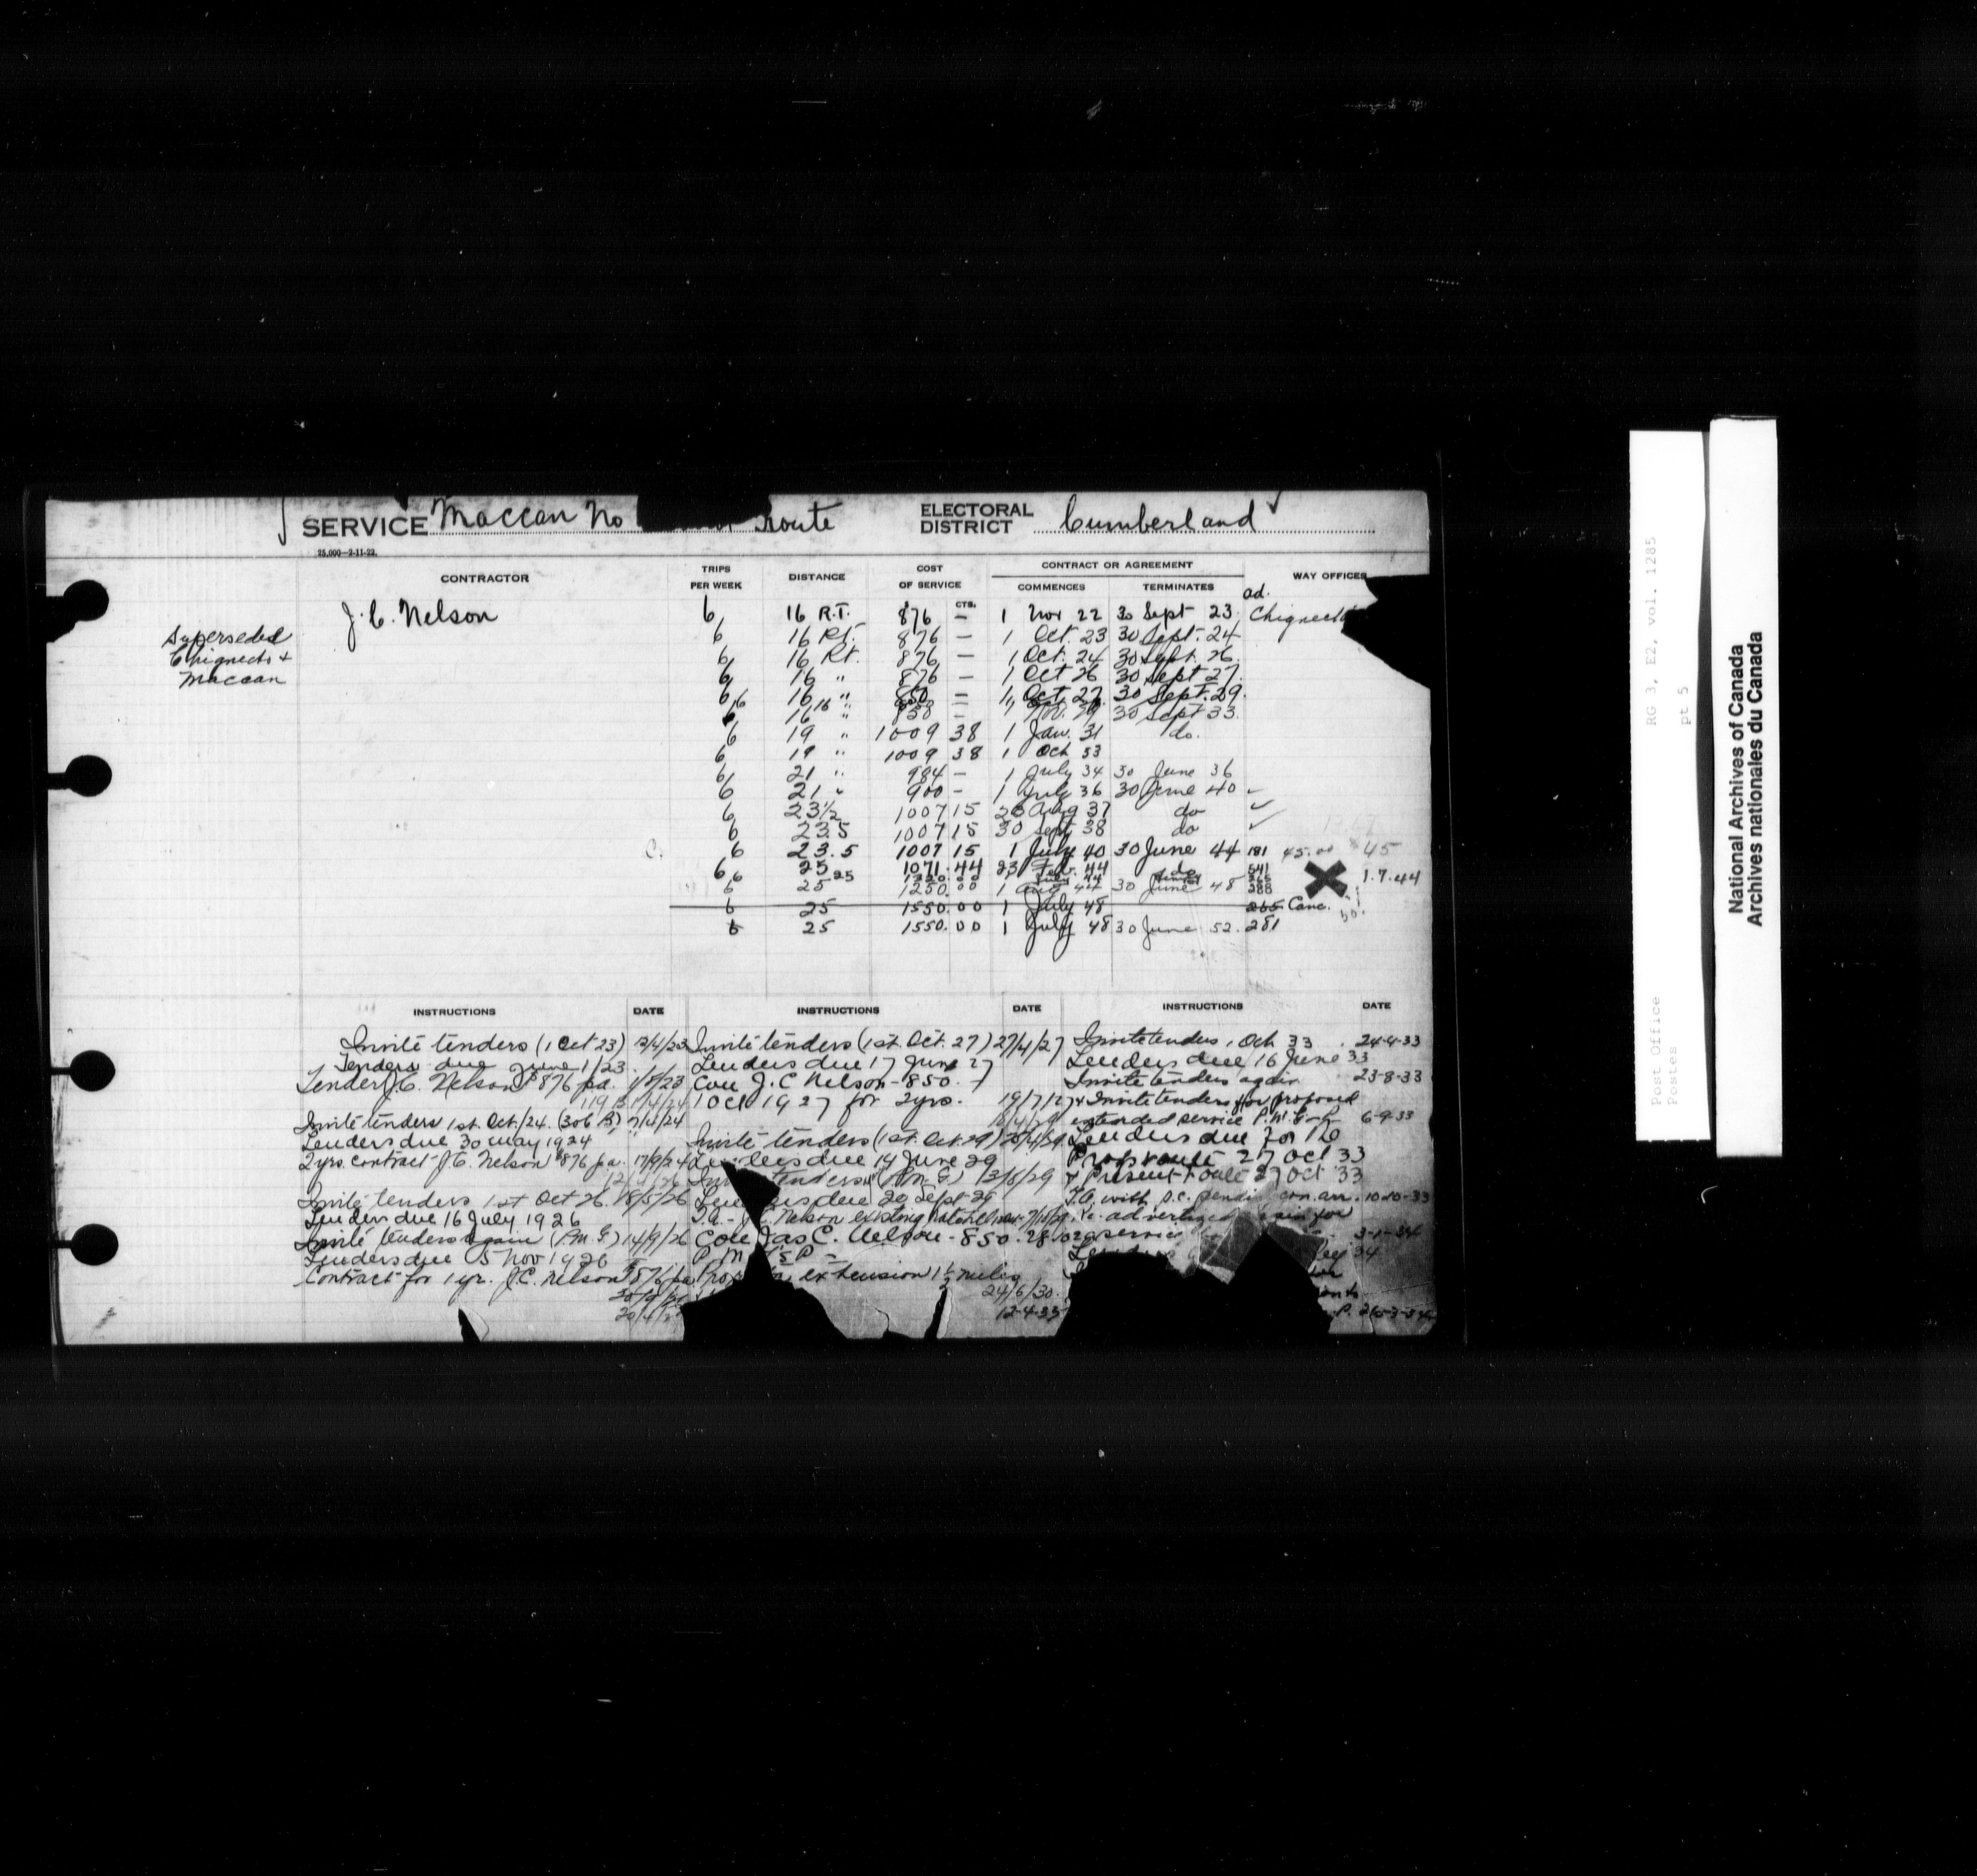 SERVICE Maccan No Route ELECTORAL DISTRICT Cumberland
25,000—2-11-22.
CONTRACTOR TRIPS PER WEEK DISTANCE COST OF SERVICE CONTRACT OR AGREEMENT COMMENCES TERMINATES WAY OFFICES
$ CTS. ad.
J. C. Nelson 6 16 R.T. 876 — 1 Nov 22 30 Sept 23 Chignecto
Superseded 6 16 Rt. 876 — 1 Oct. 23 30 Sept. 24
Chignecto & 6 16 Rt. 876 — 1 Oct. 24 30 Sept. 26
Maccan 6 16 " 876 — 1 Oct 26 30 Sept 27
6 16 " 850 — 1 Oct. 27 30 Sept. 29.
6 16 " — 1 30 Sept 33.
6 19 " 1009 38 1 Jan. 31 do.
6 19 " 1009 38 1 Oct 33
6 21 " 984 — 1 July 34 30 June 36
6 21 " 900 — 1 July 36 30 June 40 ✓
6 23 1/2 1007 15 26 Aug 37 do ✓
6 23.5 1007 15 30 Sept 38 do ✓
6 23.5 1007 15 1 July 40 30 June 44 181 45.00 45
6 25 1071.44 23 Feb. 44 do 541
6 25 1320.00 July 44 1.7.44
6 25 1250.00 1 Aug 44 30 June 48
6 25 1550.00 1 July 48 265 Canc.
6 25 1550.00 1 July 48 30 June 52. 281
INSTRUCTIONS DATE INSTRUCTIONS DATE INSTRUCTIONS DATE
Invite tenders (1 Oct 23) 12/4/23
Tenders due June 1/23.
Tender J.C. Nelson $876 pa.
Invite tenders 1st. Oct./24. (306 B) 7/4/24
Tenders due 30 May 1924
2 yrs. contract J.C. Nelson $876 p.a. 17/9/24
Invite tenders 1st Oct 26. 18/5/26
Tenders due 16 July 1926
Invite tenders again (P.M.G) 14/9/26
Tenders due 5 Nov 1926
Contract for 1 yr. J.C. Nelson $876 pa
Invite tenders (1st. Oct. 27) 27/4/27
Tenders due 17 June 27
Con J.C Nelson - 850. -
1 Oct 1927 for 2 yrs. 19/7/27
Invite tenders (1st. Oct. 29)
due 14 June 29
tenders (P.M.G) 13/8/29
due 20 Sept 29
T.A. - Nelson existing rate
Con Jas C. Nelson - 850.
P.M.
extension 1 1/2 miles
24/6/30.
12-4-33
Invite tenders 1 Oct 33. 24-4-33
Tenders due 16 June 33
Invite tenders again 23-8-33
& Invite tenders for proposed
extended service P.M. 6-9-33
Tenders due for
Prop route 27 Oct 33
& Present route 27 Oct 33
T.A. with p.c. con. arr. 10-10-33
advertize for
service 3-1-34
34
P. 26-3-34
RG 3, E2, vol. 1285
pt 5
Post Office
Postes
National Archives of Canada
Archives nationales du Canada